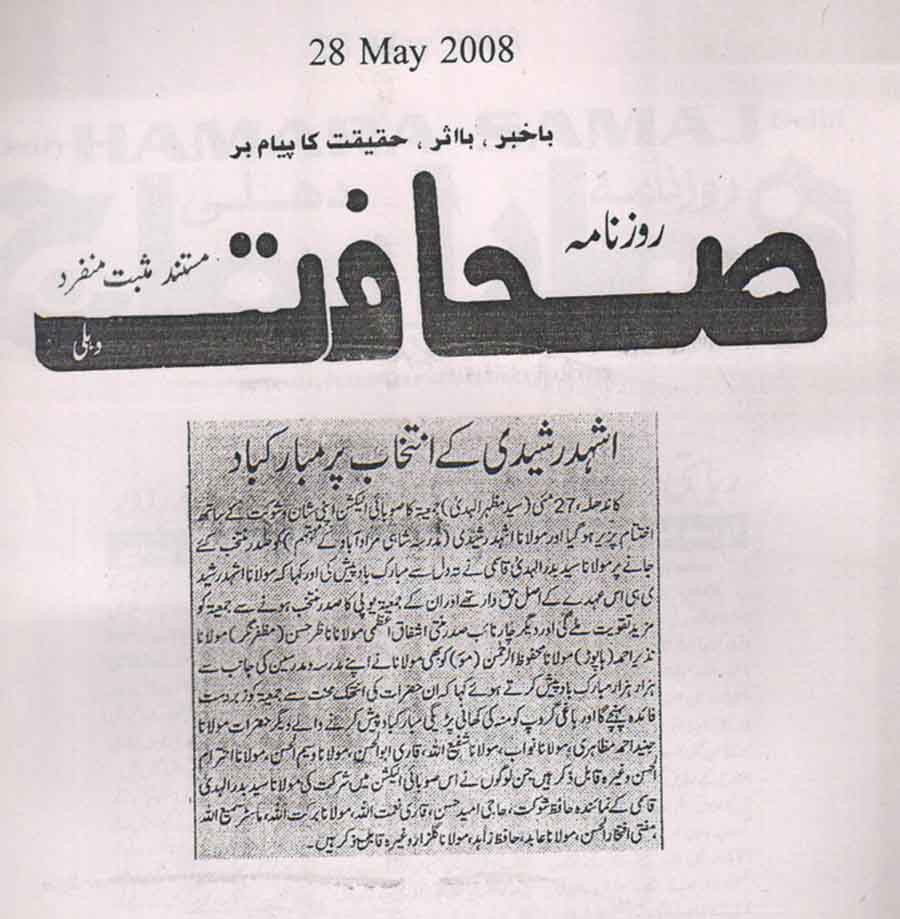 28 May 2008
باخبر، بااثر، حقیقت کا پیام بر
روزنامہ
صحافت
مستند مثبت منفرد
دہلی
اشہد رشیدی کے انتخاب پر مبارکباد
کاندھلہ، 27 مئی (سید مظہر الہدیٰ) جمعیۃ کا صوبائی الیکشن اپنی شان و شوکت کے ساتھ
اختتام پزیر ہو گیا اور مولانا اشہد رشیدی (مدرسہ شاہی مراد آباد کے مہتمم) کو صدر منتخب کئے
جانے پر مولانا سید بدر الہدیٰ قاسمی نے تہ دل سے مبارک باد پیش کی اور کہا کہ مولانا اشہد رشید
ی ہی اس عہدے کے اصل حق دار تھے اور ان کے جمعیۃ یوپی کا صدر منتخب ہونے سے جمعیۃ کو
مزید تقویت ملے گی اور دیگر چار نائب صدر مفتی اشفاق اعظمی مولانا ناظر حسن (مظفر نگر) مولانا
نذیر احمد (ہاپوڑ) مولانا محفوظ الرحمٰن (مؤ) کو بھی مولانا نے اپنے مدرسہ و مدرسین کی جانب سے
ہزار ہزار مبارک باد پیش کرتے ہوئے کہا کہ ان حضرات کی انتھک محنت سے جمعیۃ کو زبردست
فائدہ پہنچے گا اور باغی گروپ کو منہ کی کھانی پڑیگی مبارکباد پیش کرنے والے دیگر حضرات مولانا
جنید احمد مظاہری، مولانا نواب، مولانا شفیع اللہ، قاری ابوالحسن، مولانا وسیم الحسن، مولانا احترام
الحسن وغیرہ قابل ذکر ہیں جن لوگوں نے اس صوبائی الیکشن میں شرکت کی مولانا سید بدر الہدیٰ
قاسمی کے نمائندہ حافظ شوکت، حاجی امید حسن، قاری نعمت اللہ، مولانا برکت اللہ، ماسٹر سمیع اللہ
، مفتی افتخار الحسن، مولانا عابد، حافظ زاہد، مولانا گلزار وغیرہ قابل ذکر ہیں۔